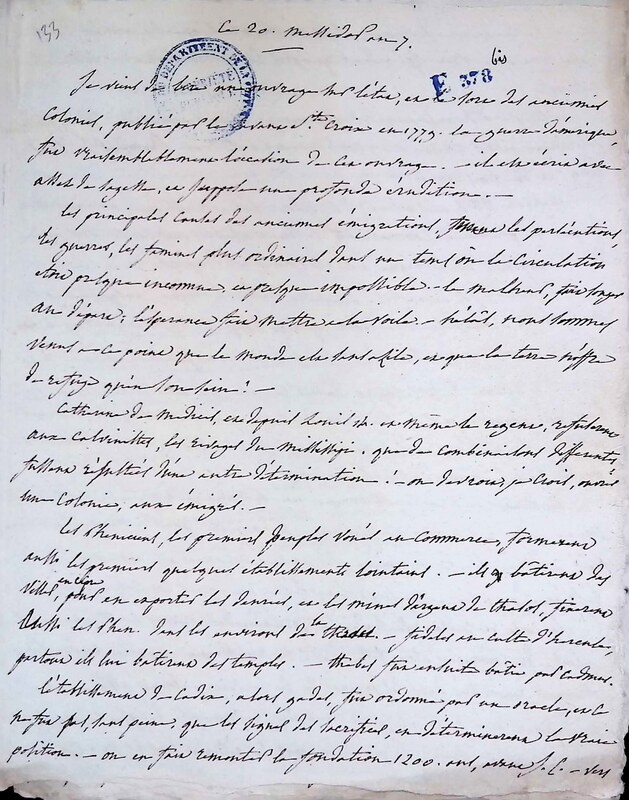 133
Ce 20. Messidor an 7.
(bis)
E 378
DEPARTEMENT DE LA
Je viens de lire un ouvrage sur l'état, et le sort des anciennes
Colonies, publié par le savant Ste. Croix en 1779. la guerre d'amérique,
fut vraisemblablement l'occasion de cet ouvrage. — il est écrit avec
assez de sagesse, et suppose une profonde érudition. —
les principales causes des anciennes émigrations, furent les persécutions,
les guerres, les famines plus ordinaires dans un tems où la Circulation
était presque inconnue, et presque impossible. — le malheur, fait songer
au départ; l'espérance fait mettre à la voile. — hélas, nous sommes
venus à ce point que le monde est sans asile, et que la terre n'offre
de refuge qu'en son sein! —
Catherine de Médicis, et depuis Louis 14. et même le régent, refusèrent
aux Calvinistes, les rivages du Mississipi. que de combinaisons différentes,
fussent résultées d'une autre détermination! — on devroit, je crois, ouvrir
une Colonie, aux émigrés. —
Les Phéniciens, les premiers peuples voués au Commerce, formèrent
aussi les premiers quelques établissements lointains. — ils bâtirent des
villes, pour en exporter les denrées, et les mines d'argent de Thasos, fixèrent
aussi les Phen. dans les environs de la — fidèles au culte d'hercule,
partout ils lui bâtirent des temples. — thèbes fut ensuite bâtie par Cadmus.
l'établissement de Cadix, alors gadès, fut ordonné par un oracle, et ce
ne fut pas, sans peine, que les signes des sacrifices, en déterminèrent la vraie
position. — on en fait remonter la fondation 1200. ans, avant J. C. — vers